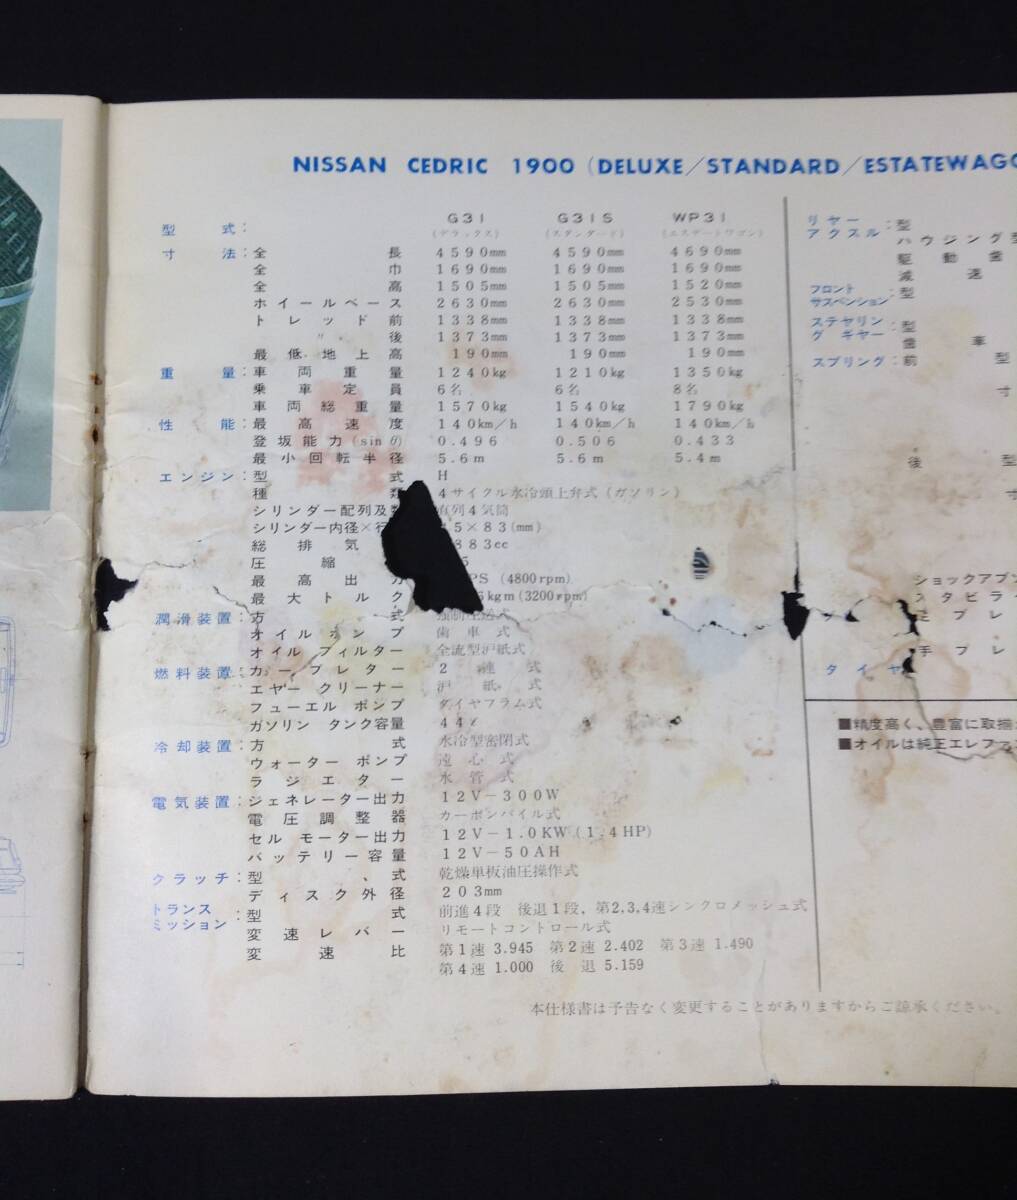 NISSAN CEDRIC 1900 (DELUXE/STANDARD/ESTATEWAGO
G31 G31S WP31
型式: (デラックス) (スタンダード) (エステートワゴン)
寸法: 全長 4590mm 4590mm 4690mm
全巾 1690mm 1690mm 1690mm
全高 1505mm 1505mm 1520mm
ホイールベース 2630mm 2630mm 2530mm
トレッド前 1338mm 1338mm 1338mm
〃後 1373mm 1373mm 1373mm
最低地上高 190mm 190mm 190mm
重量: 車両重量 1240kg 1210kg 1350kg
乗車定員 6名 6名 8名
車両総重量 1570kg 1540kg 1790kg
性能: 最高速度 140km/h 140km/h 140km/h
登坂能力(sinθ) 0.496 0.506 0.433
最小回転半径 5.6m 5.6m 5.4m
エンジン: 型式 H
種類 4サイクル水冷頭上弁式(ガソリン)
シリンダー配列及 直列4気筒
シリンダー内径× 5×83(mm)
総排気 883cc
圧縮 5
最高出力 PS (4800rpm)
最大トルク kgm(3200rpm)
潤滑装置: 方式
オイルポンプ 歯車式
オイルフィルター 全流型沪紙式
燃料装置: カーブレター 2連式
エヤークリーナー 沪紙式
フューエルポンプ ダイヤフラム式
ガソリンタンク容量 44ℓ
冷却装置: 方式 水冷型密閉式
ウォーターポンプ 遠心式
ラジエター 水管式
電気装置: ジェネレーター出力 12V-300W
電圧調整器 カーボンパイル式
セルモーター出力 12V-1.0KW(1.4HP)
バッテリー容量 12V-50AH
クラッチ: 型式 乾燥単板油圧操作式
ディスク外径 203mm
トランスミッション: 型式 前進4段 後退1段, 第2,3,4速シンクロメッシュ式
変速レバー リモートコントロール式
変速比 第1速 3.945 第2速 2.402 第3速 1.490
第4速 1.000 後退 5.159
本仕様書は予告なく変更することがありますからご諒承ください。
リヤーアクスル: 型
ハウジング型
駆動歯
減速
フロントサスペンション: 型
ステヤリングギヤー: 型
歯車
スプリング: 前型
寸
後型
寸
ショックアブソ
スタビラ
プレ
手プレ
タイヤ
■精度高く、豊富に取揃
■オイルは純正エレファ